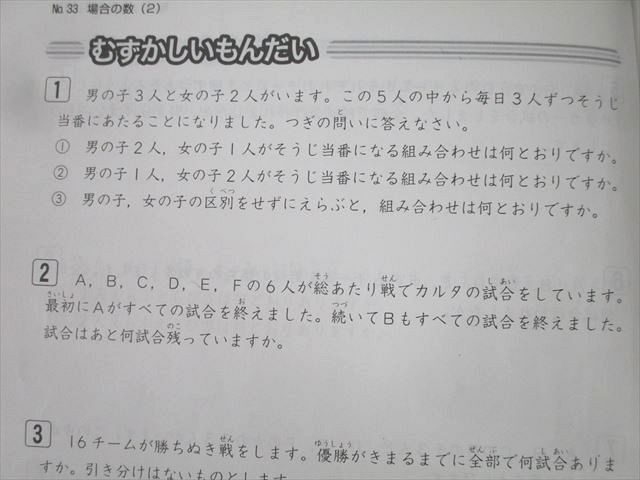 No.33 場合の数(2)
むずかしいもんだい
1 男の子3人と女の子2人がいます。この5人の中から毎日3人ずつそうじ
当番にあたることになりました。つぎの問いに答えなさい。
① 男の子2人,女の子1人がそうじ当番になる組み合わせは何とおりですか。
② 男の子1人,女の子2人がそうじ当番になる組み合わせは何とおりですか。
③ 男の子,女の子の区別をせずにえらぶと,組み合わせは何とおりですか。
2 A,B,C,D,E,Fの6人が総あたり戦でカルタの試合をしています。
最初にAがすべての試合を終えました。続いてBもすべての試合を終えました。
試合はあと何試合残っていますか。
3 16チームが勝ちぬき戦をします。優勝がきまるまでに全部で何試合ありま
すか。引き分けはないものとします。